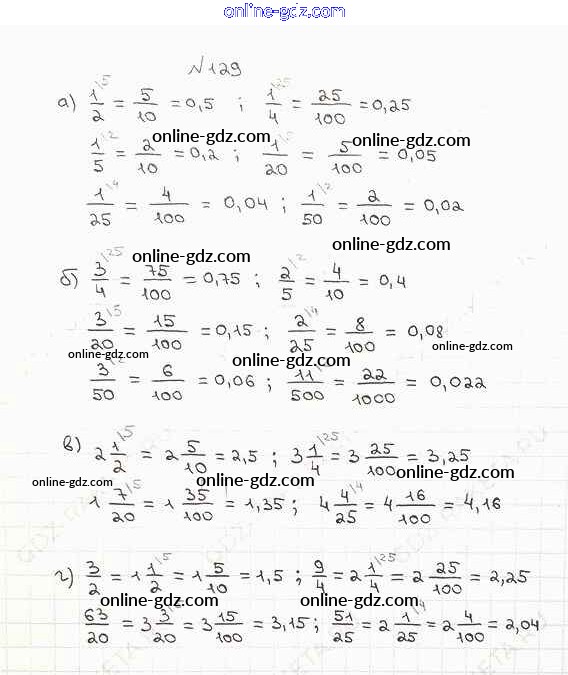 online-gdz.com
№129
а) 1/2 \5 = 5/10 = 0,5 ; 1/4 \25 = 25/100 = 0,25
online-gdz.com online-gdz.com
1/5 \2 = 2/10 = 0,2 ; 1/20 = 5/100 = 0,05
1/25 \4 = 4/100 = 0,04 ; 1/50 \2 = 2/100 = 0,02
online-gdz.com online-gdz.com
б) 3/4 \25 = 75/100 = 0,75 ; 2/5 \2 = 4/10 = 0,4
3/20 \5 = 15/100 = 0,15 ; 2/25 \4 = 8/100 = 0,08
online-gdz.com online-gdz.com online-gdz.com
3/50 \2 = 6/100 = 0,06 ; 11/500 = 22/1000 = 0,022
в) 2 1/2 \5 = 2 5/10 = 2,5 ; 3 1/4 \25 = 3 25/100 = 3,25
online-gdz.com online-gdz.com online-gdz.com
1 7/20 \5 = 1 35/100 = 1,35 ; 4 4/25 \4 = 4 16/100 = 4,16
г) 3/2 = 1 1/2 \5 = 1 5/10 = 1,5 ; 9/4 = 2 1/4 \25 = 2 25/100 = 2,25
online-gdz.com online-gdz.com
63/20 = 3 3/20 = 3 15/100 = 3,15 ; 51/25 = 2 1/25 \4 = 2 4/100 = 2,04
online-gdz.com online-gdz.com